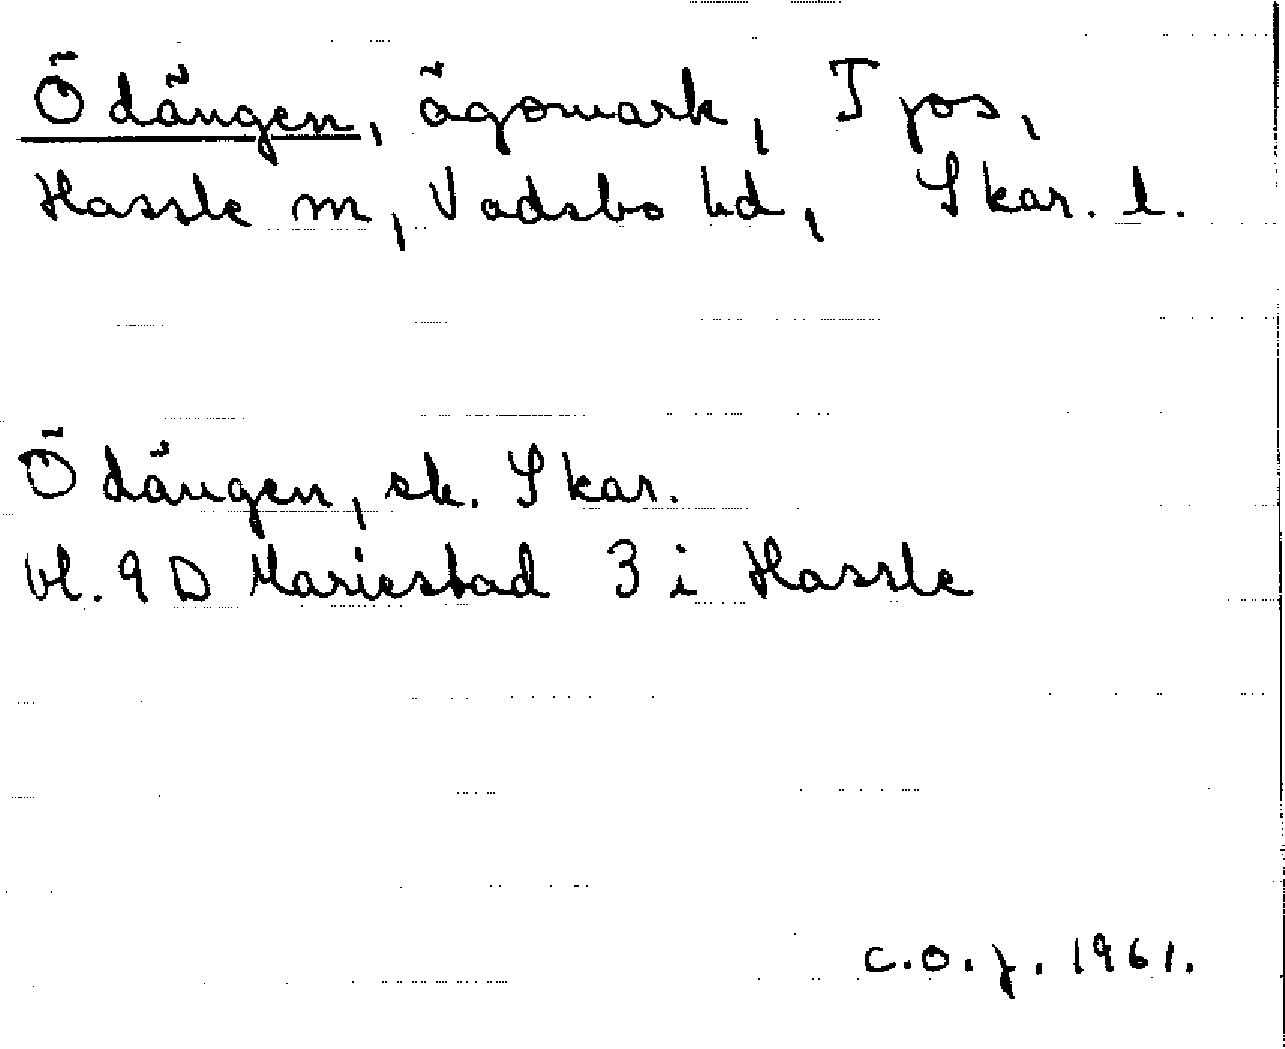 Ödängen, ägomark, T pos,
Hassle sn, Vadsbo hd, Skar. l.
Ödängen, sk. Skar.
bl. 9 D Mariestad 3 i Hassle
C.O.J. 1961.